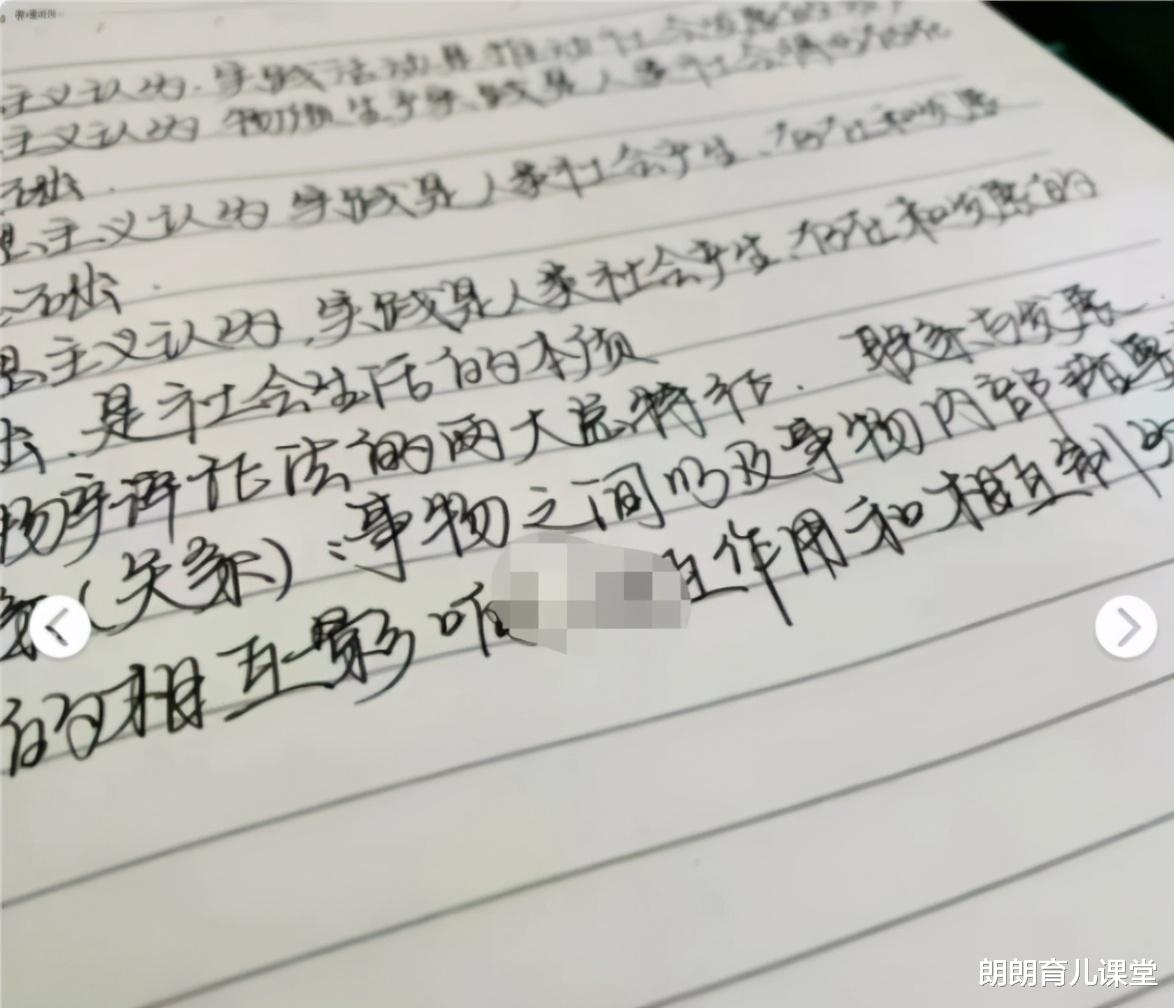 主义认为.实践活动是推动社会发展的
主义认为 物质生产实践是人类社会得以存在
础.
主义认为 实践是人类社会产生、存在和发展
础.
思主义认为,实践是人类社会产生、存在和发展的
出.是社会生活的本质
物辩证法的两大总特征. 联系与发展.
系(关系):事物之间以及事物内部诸要
的相互影响 互作用和相互制约
朗朗育儿课堂